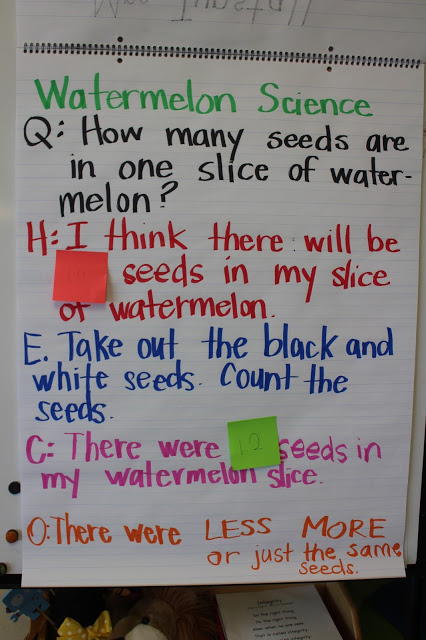 Watermelon Science
Q: How many seeds are
in one slice of water-
melon?
H: I think there will be
seeds in my slice
of watermelon.
E. Take out the black and
white seeds. Count the
seeds.
C: There were 12 seeds in
my watermelon slice.
O: There were LESS MORE
or just the same
seeds.
Integrity